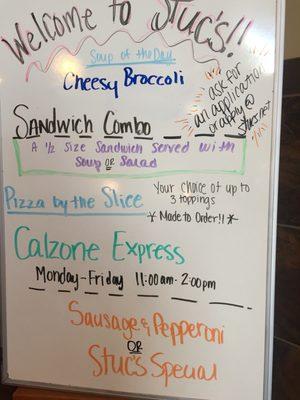 Welcome to Stuc's!!
Soup of the Day
Cheesy Broccoli
ask for
an application
or apply @
stucs.net
Sandwich Combo
A 1/2 Size Sandwich Served with
Soup or Salad
Pizza by the Slice
Your choice of up to
3 toppings
* Made to Order!! *
Calzone Express
Monday-Friday 11:00am-2:00pm
Sausage & Pepperoni
OR
Stuc's Special